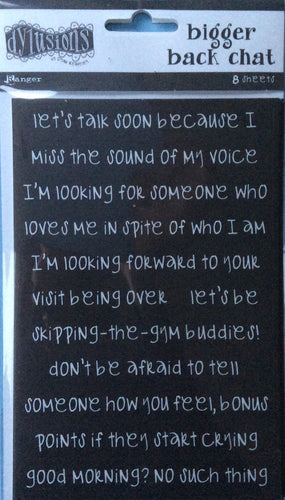 dylusions
bigger
back chat
Ranger
8 sheets
let's talk soon because I
miss the sound of my voice
I'm looking for someone who
loves me in spite of who I am
I'm looking forward to your
visit being over let's be
skipping-the-gym buddies!
don't be afraid to tell
someone how you feel, bonus
points if they start crying
good morning? no such thing